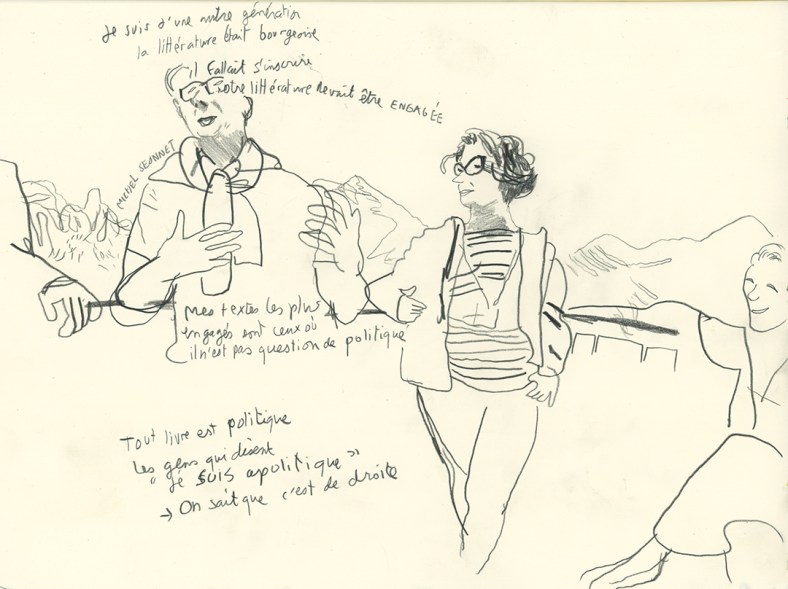 Je suis d'une autre génération
la littérature était bourgeoise
il fallait s'inscrire
Notre littérature devait être ENGAGÉE
MICHEL SÉONNET
Mes textes les plus
engagés sont ceux où
il n'est pas question de politique
Tout livre est politique
Les gens qui disent
"Je SUIS apolitique"
→ On sait que c'est de droite